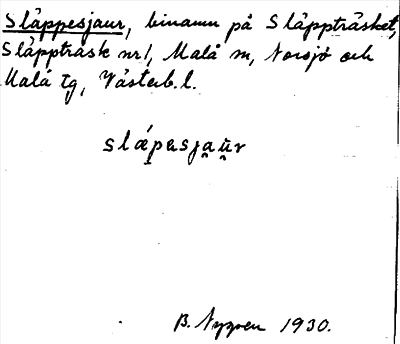 Släppesjaur, binamn på Släppträsket,
Släppträsk nr 1, Malå sn, Norsjö och
Malå tg, Västerb. l.
slápesjau̯r
B. Nygren 1930.